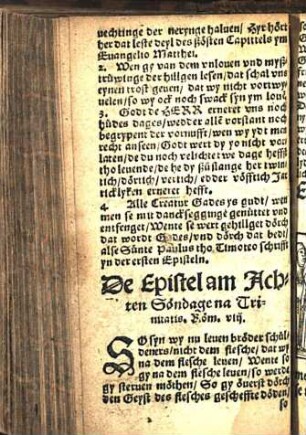 uechtinge der nerynge haluen/ Hyr hört
her dat leste deyl des sösten Capittels ym
Euangelio Matthei.
2. Wen gy van dem vnlouen vnd myß-
trüwinge der hilligen lesen/ dat schal vns
eynen trost geuen/ dat wy nicht vortwy-
uelen/ so wy ock noch swack syn ym louē.
3. Godt de HERR erneret vns noch
hüdes dages/ wedder alle vorstant noch
begrypent der vornufft/ wen wy ydt man
recht anseen/ Godt wert dy yo nicht vor-
laten/ de du noch velichtet we dage hefft
tho leuende/ de he dy süßlange her twin-
tich/ dörtich/ vertich/ edder vöfftich Jar
ricklyken erneret hefft.
4. Alle Creatur Gades ys gudt/ wen
men se mit dancksegginge genüttet vnd
entfenget/ Wente se wert gehilliget dörch
dat wordt Gades/ vnd dörch dat bedt/
alse Sünte Paulus tho Timotteo schrifft
yn der ersten Episteln.
De Epistel am Ach-
ten Söndage na Tri-
nitatis. Röm. viij.
SO syn wy nu leuen bröder schül-
deners/ nicht dem flesche/ dat wy
na dem flesche leuen/ Wente so
gy na dem flesche leuen/ so werde
gy steruen möthen/ So gy öuerst dörch
den Geyst des flesches gescheffte döden/
so